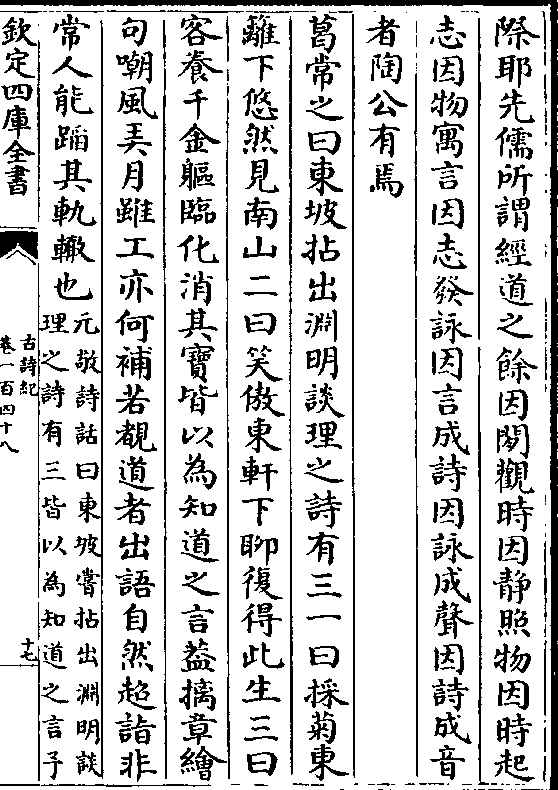 際耶先儒所謂經道之餘因閑觀時因静照物因時起
志因物寓言因志發詠因言成詩因詠成聲因詩成音
者陶公有焉
葛常之曰東坡拈出淵明談理之詩有三一曰採菊東
籬下悠然見南山二曰笑傲東軒下聊復得此生三曰
客養千金軀臨化消其寶皆以為知道之言葢摛章繪
句嘲風弄月雖工亦何補若覩道者出語自然超詣非
常人能蹈其軌轍也
元敬詩話曰東坡嘗拈出淵明談
理之詩有三皆以為知道之言予
欽定四庫全書
古詩紀
卷一百四十八
十七